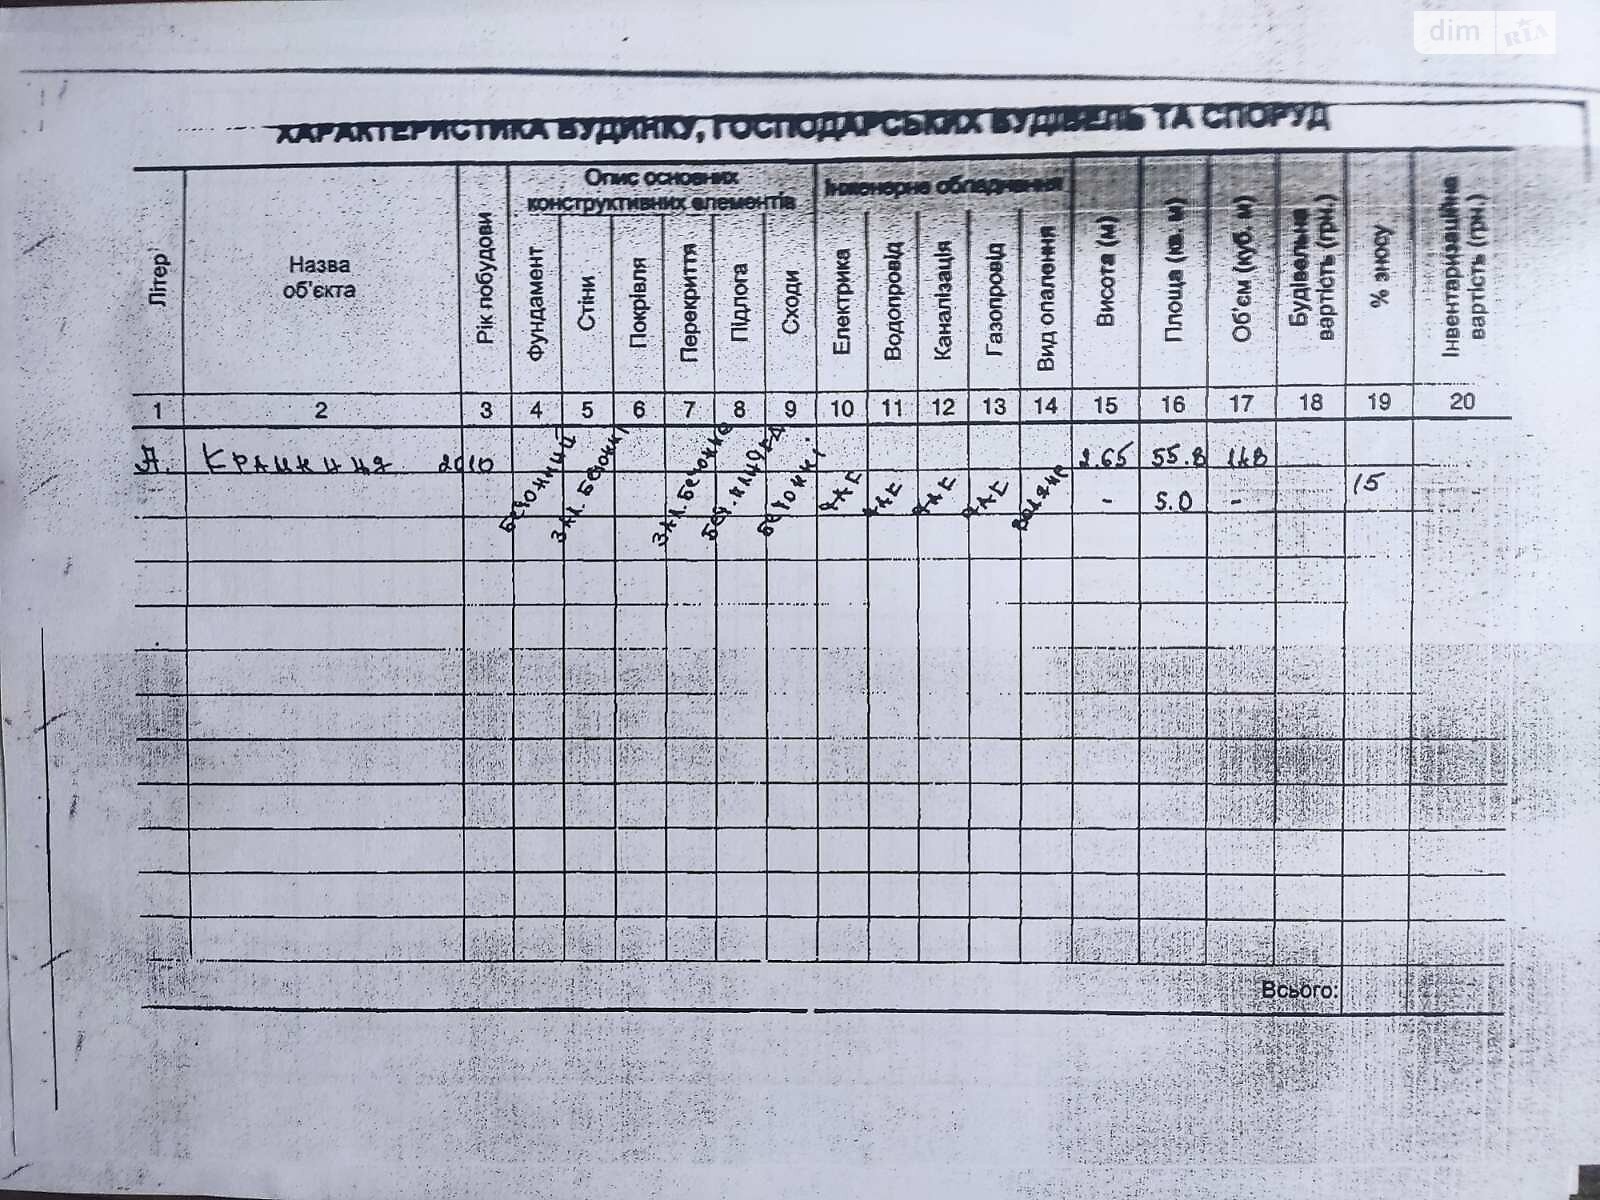 dim RIA
ХАРАКТЕРИСТИКА БУДИНКУ, ГОСПОДАРСЬКИХ БУДІВЕЛЬ ТА СПОРУД
Літер
Назва
об'єкта
Рік побудови
Опис основних
конструктивних елементів
Фундамент
Стіни
Покрівля
Перекриття
Підлога
Сходи
Інженерне обладнання
Електрика
Водопровід
Каналізація
Газопровід
Вид опалення
Висота (м)
Площа (кв. м)
Об'єм (куб. м)
Будівельна
вартість (грн.)
% зносу
Інвентаризаційна
вартість (грн.)
1 2 3 4 5 6 7 8 9 10 11 12 13 14 15 16 17 18 19 20
А. 2010 2.65 55.8 148
- 5.0 - 15
Всього: